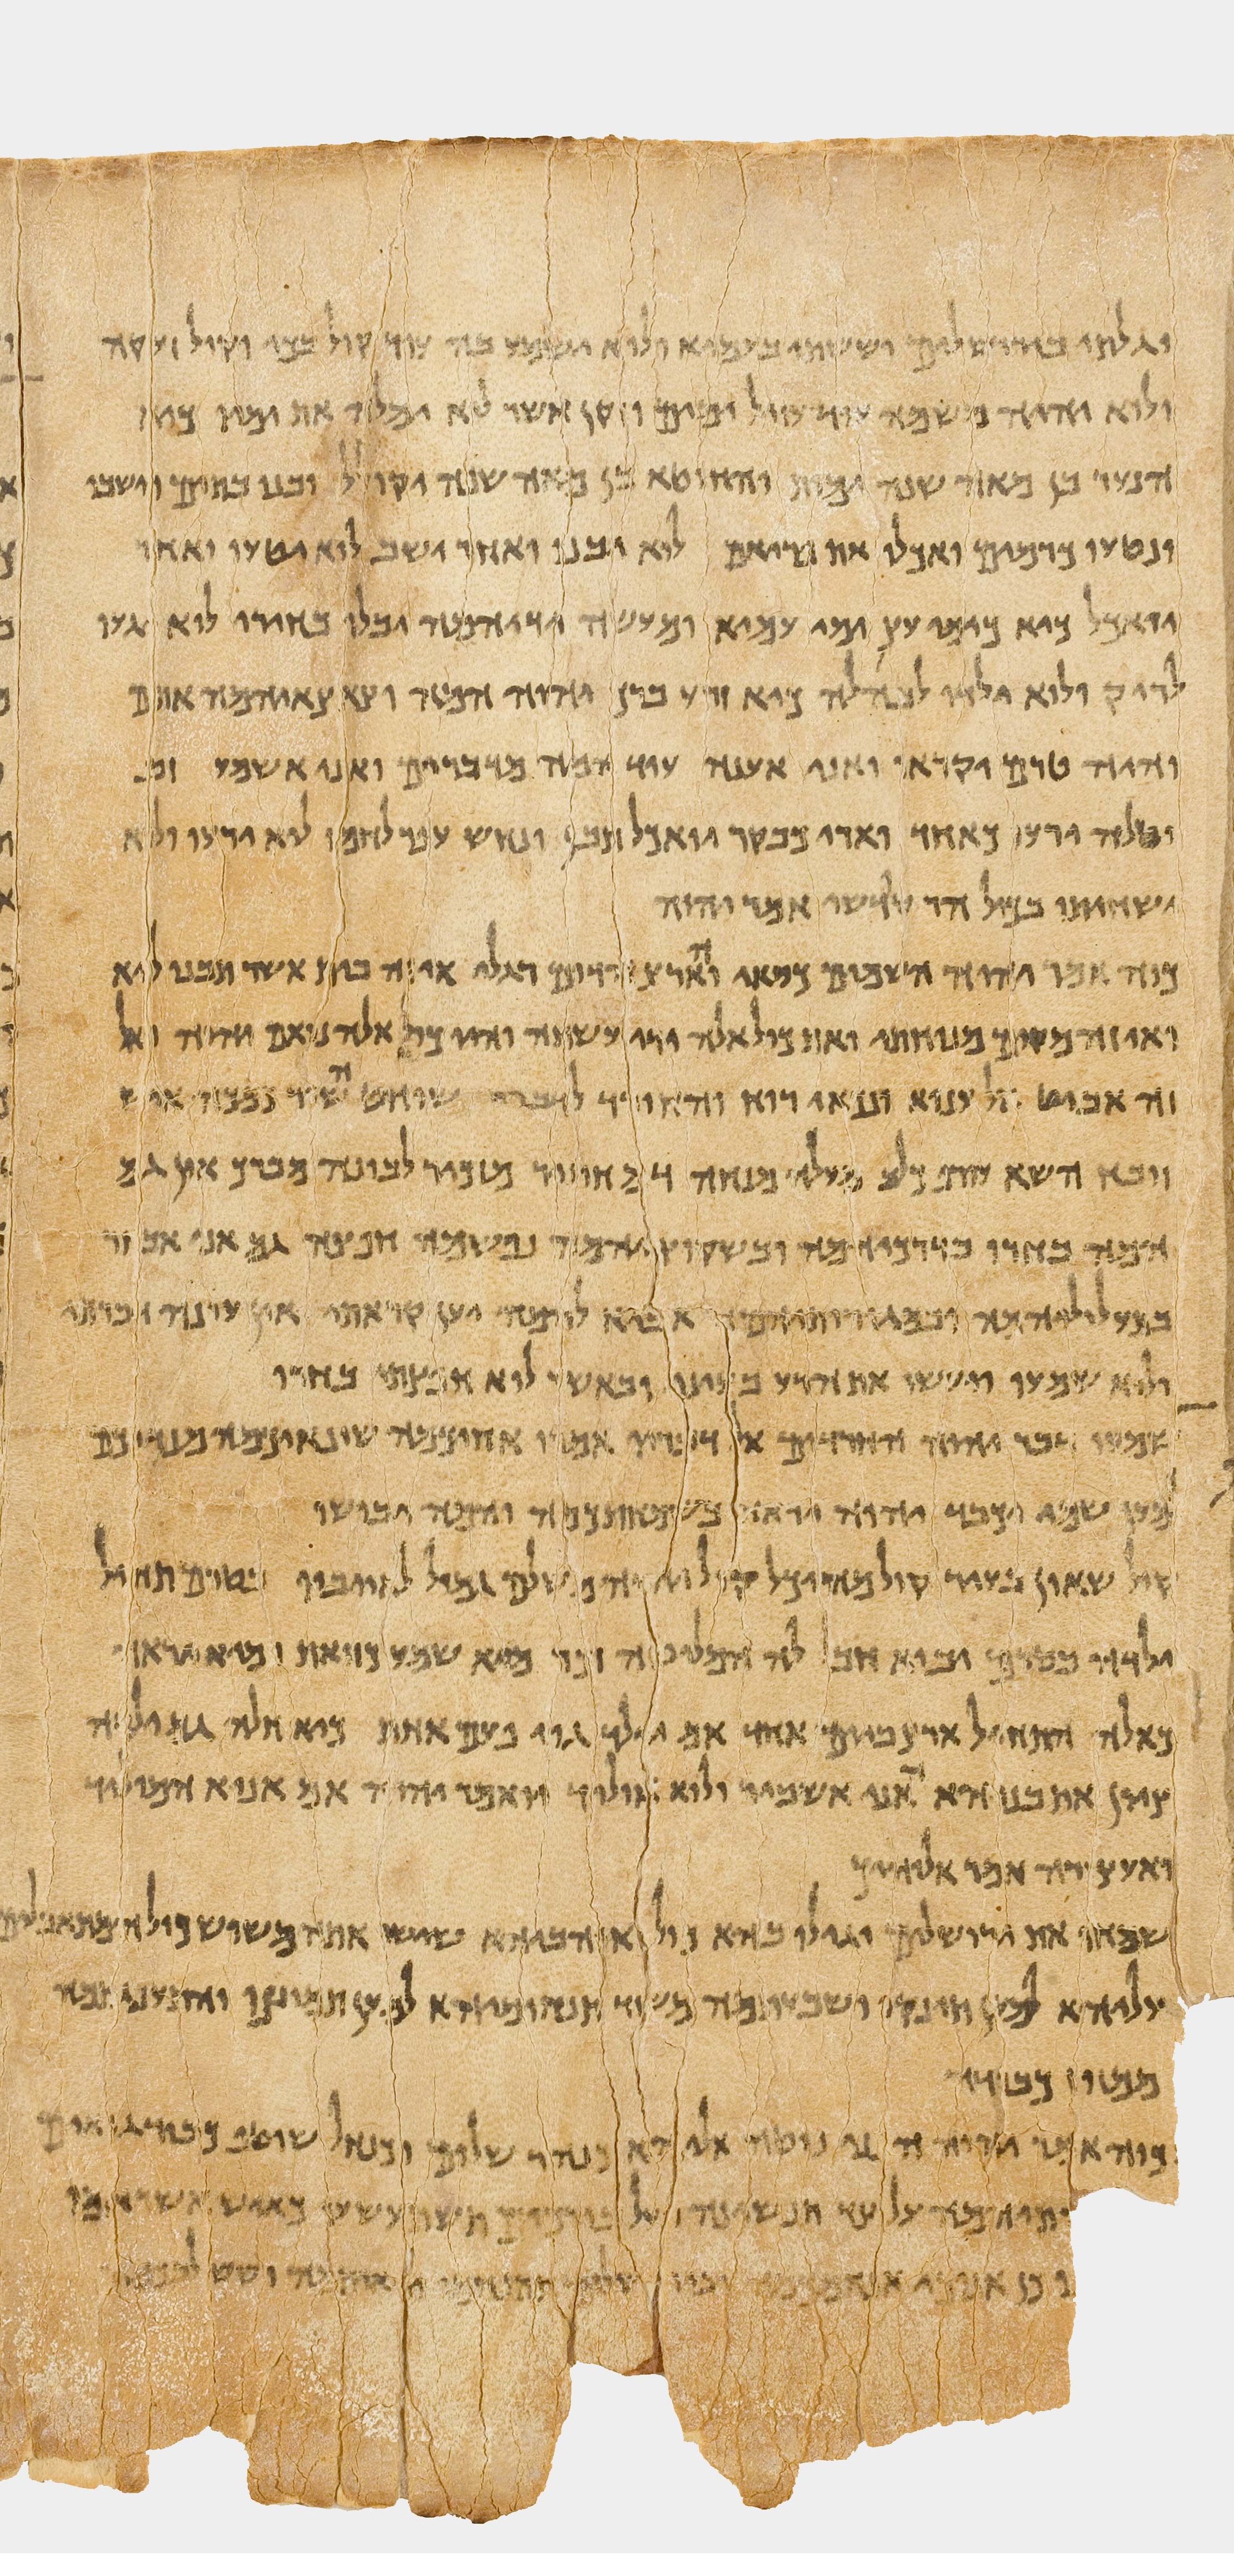 וגלתי בירושלים וששתי בעמיא ולוא ישמע בה עוד קול בכי וקול זעקה
ולוא יהיה משמה עוד עויל ימים וזקן אשר לוא ימלה את ימיו כיא
הנער בן מאה שנה ימות והחוטא בן מאה שנה יקולל ובנו בתים וישבו
ונטעו כרמים ואכלו את פריאם לוא יבנו ואחר ישב לוא יטעו ואחר
יואכל כיא כיומי עץ ימי עמיא ומעשה ידיהמה יבלו בחירי לוא יגעו
לריק ולוא ילדו לבהלה כיא זרע ברך יהוה המה וצאצאיהמה אתם
והיה טרם יקראו ואני אענה עוד המה מדברים ואני אשמע
וטלה ירעו כאחד ואריה כבקר יואכל תבן ונחש עפר לחמו לוא ירעו ולוא
ישחיתו בכול הר קודשי אמר יהוה
כוה אמר יהוה השמים כסאי והארץ הדום רגלי אי זה בית אשר תבנו ליא
ואי זה מקום מנוחתי ואת כול אלה ידי עשתה והיו כול אלה נואם יהוה ואל
זה אביט אל עניא ונכאי רוח והחורד לדברי שוחט השור כמכה איש
זובח השא עורף כלב מעלה מנחה דם חזיר מזכיר לבונה מברך און גם
המה בחרו בדרכיהמה ובשקוציהמה נפשמה חפצה גם אני אבחר
בתעלוליהמה ובמגורותיהמה אביא להמה יען קראתי אין עונה דברתי
ולוא שמעו ויעשו את הרע בעיני ובאשר לוא חפצתי בחרו
שמעו דבר יהוה החרדים אל אמרו אחיכמה שונאיכמה מנדיכם
למען שמי יכבד יהוה יראה בשמחתכמה והמה יבושו
קול שאון בעיר קול מהיכל קול יהוה משלם גמול לאויביו בטרם תחיל
ילדה בטרם יבוא חבל לה והמליטה זכר מיא שמע כזואת ומיא ראה
כאלה התחיל ארץ ביום אחד אם יולד גוי פעם אחת כיא חלה גם ילדה
ציון את בניהא האני אשביר ולוא אוליד יואמר יהוה אם אניא המוליד
ואעצורה אמר אלוהיך
שמחו את ירושלים וגילו בהא כול אוהביהא שישו אתה משוש כול המתאבלים
עליהא למען תינקו ושבעתמה משוד תנחומיהא למען תמוצו והתענגתמה
ממזוז כבודה
כוה אמר יהוה הנני נוטה אליהא כנהר שלום וכנחל שוטף כבוד גואים
על צד תנשינה ועל ברכים תשתעשעו כאיש אשר אמו
כן אנוכי אנחמכמה וראיתמה ושש לבכמה